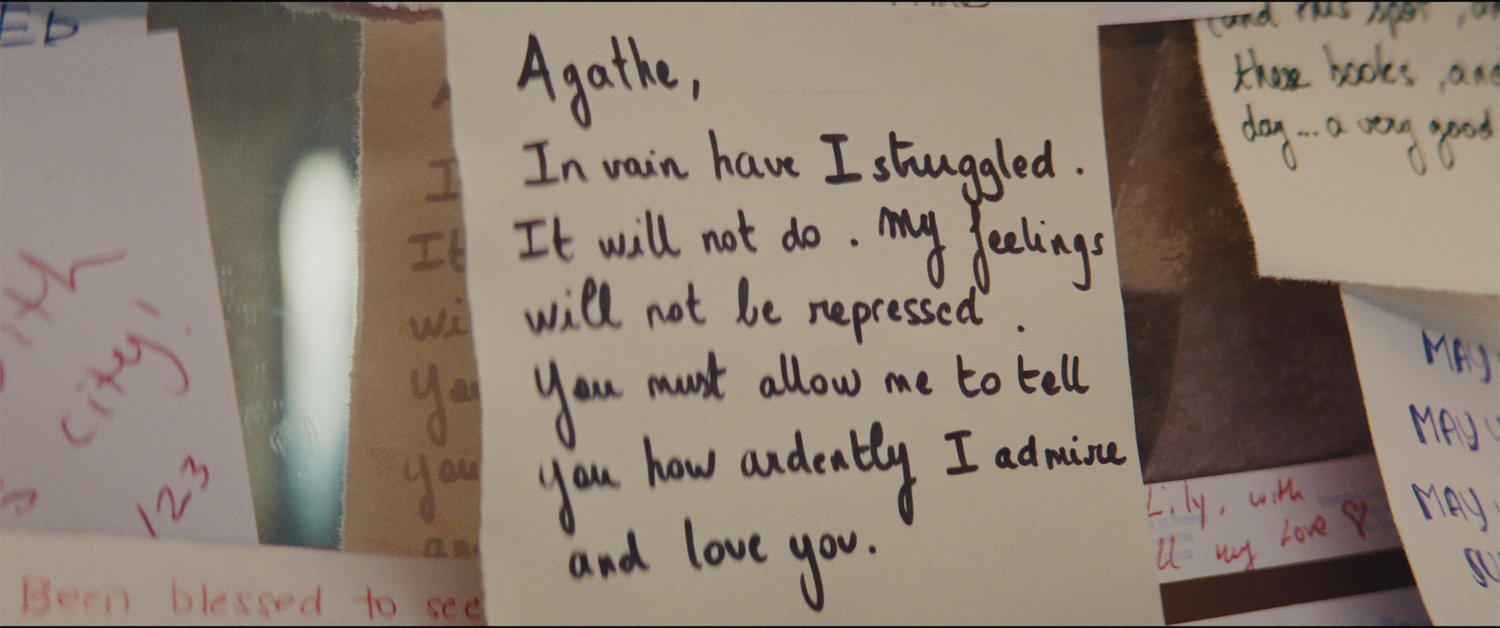 Agathe,
In vain have I struggled.
It will not do. My feelings
will not be repressed.
You must allow me to tell
you how ardently I admire
and love you.
and this spot
these books, and
day... a very good
MAY
MAY
MAY
Lily, with
my love ♡
city!
123
Been blessed to see
It
wi
You
you